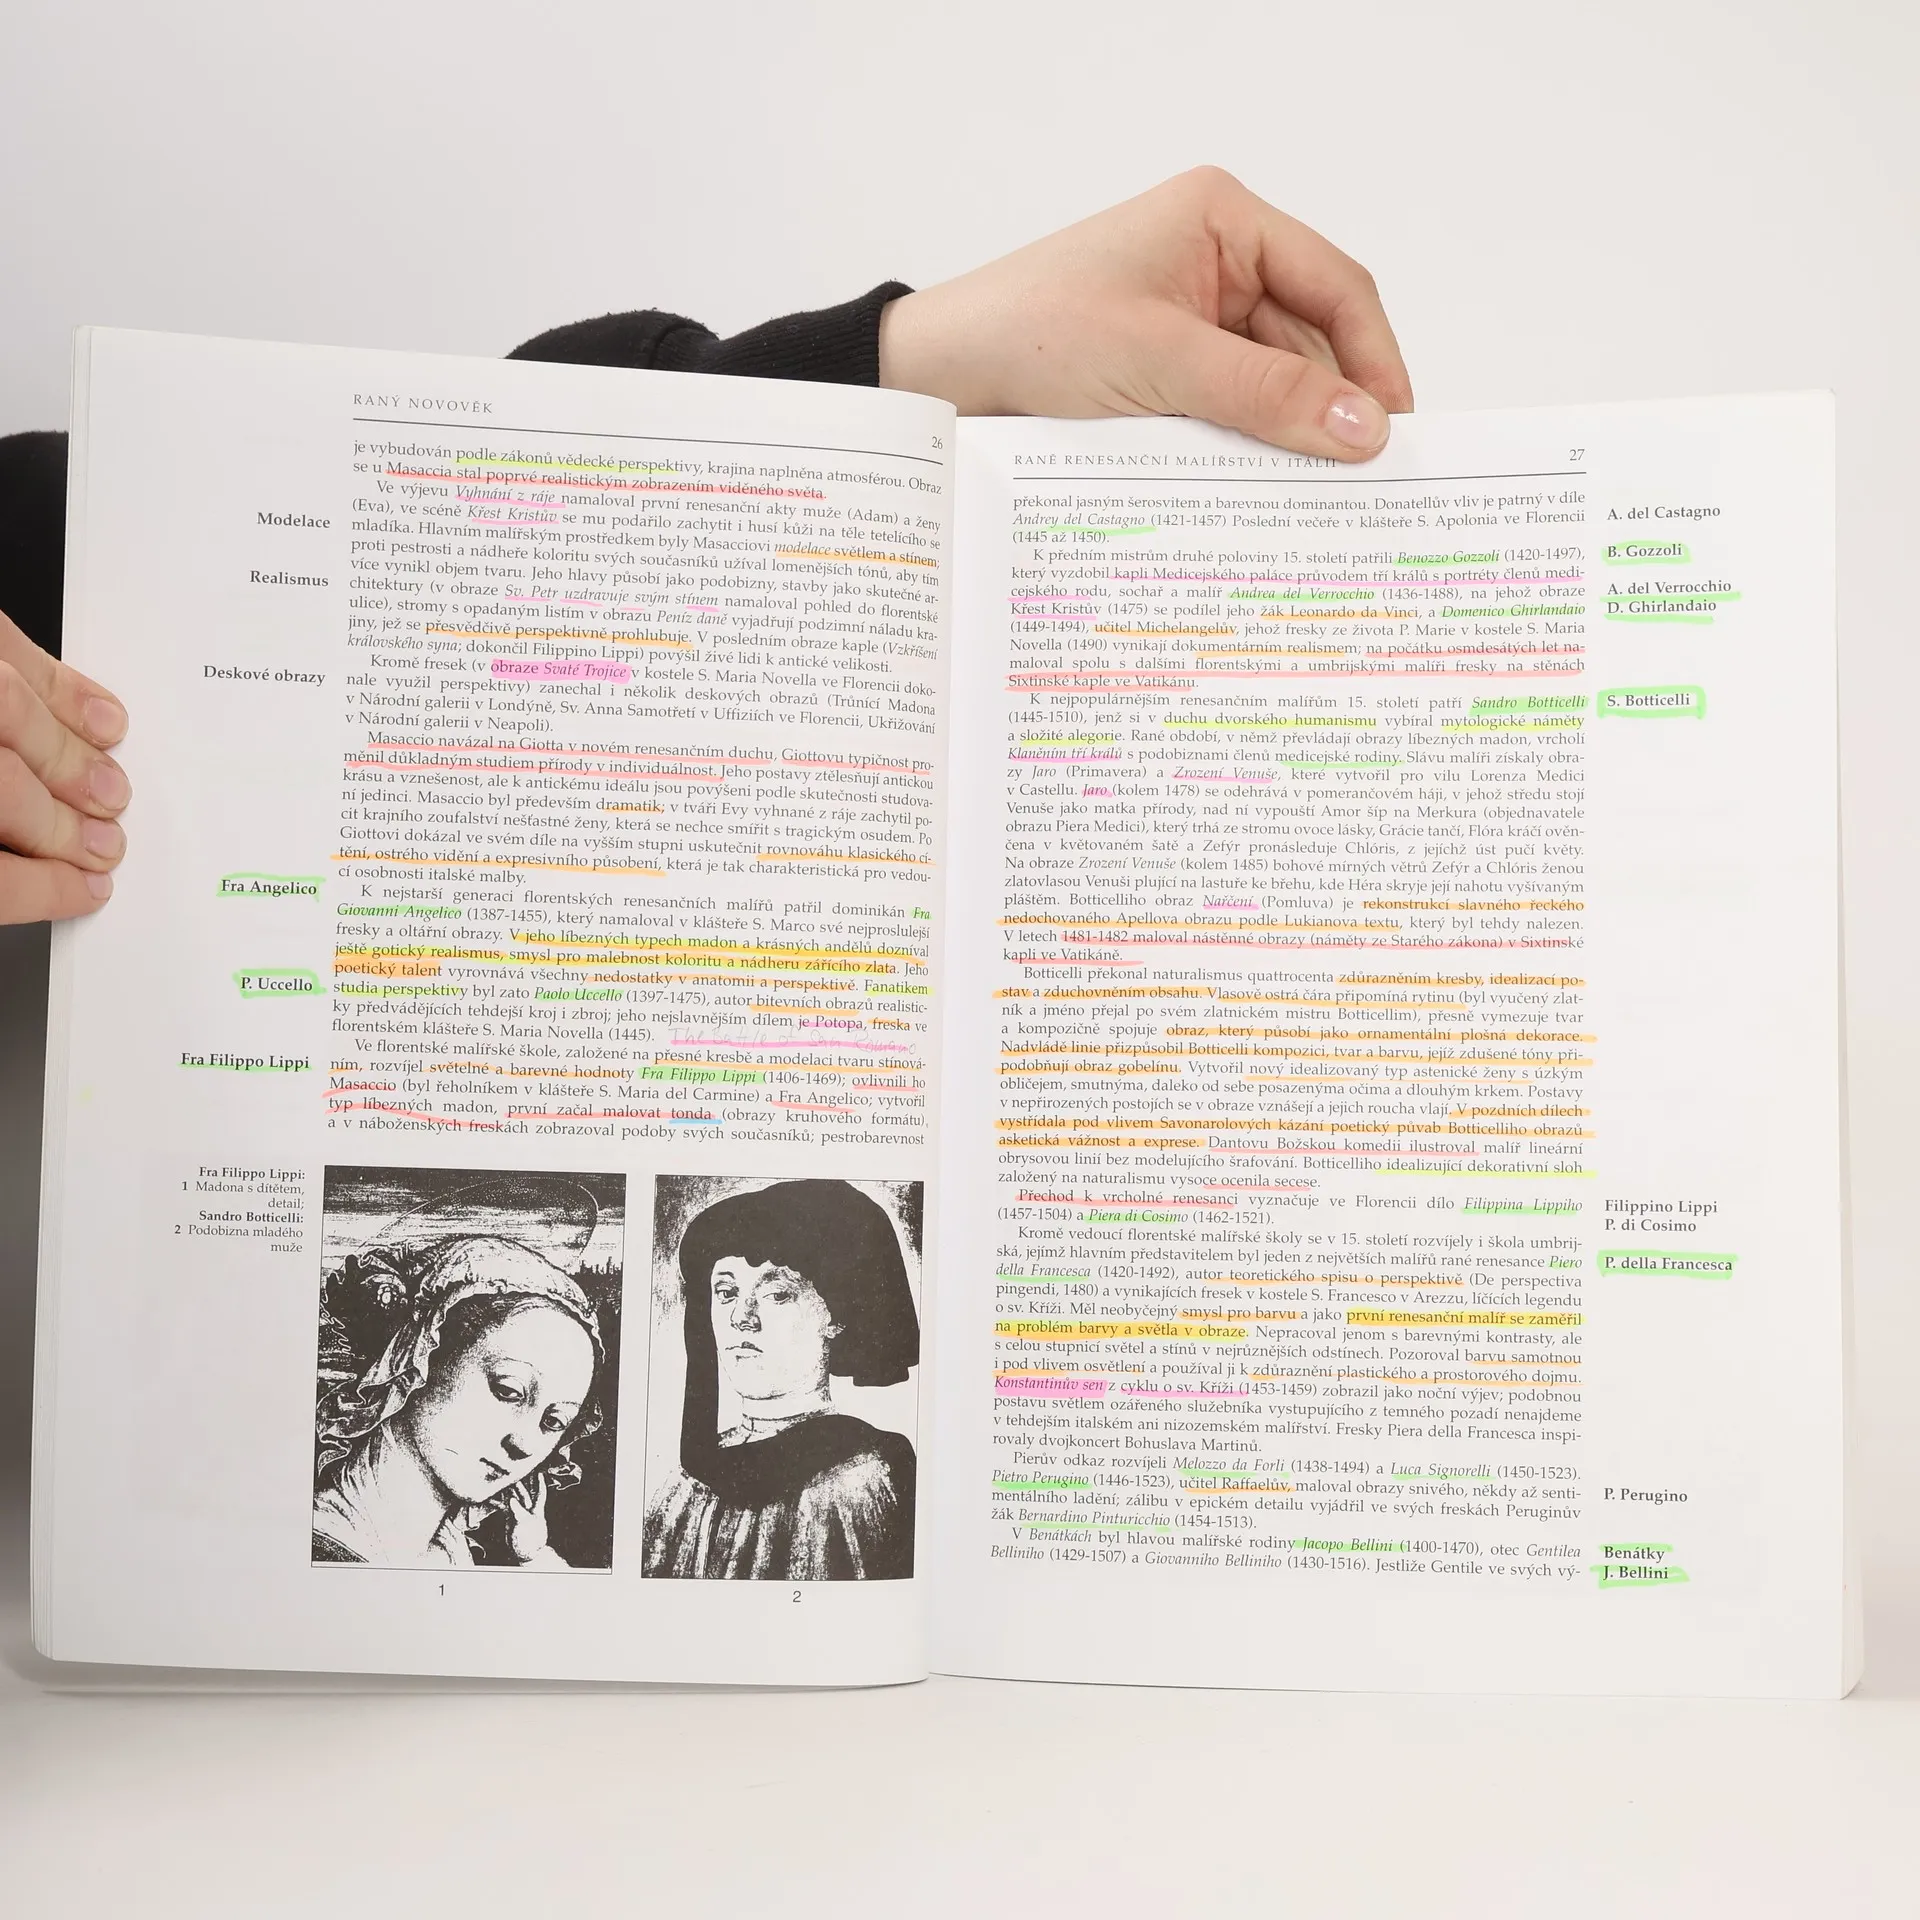 RANÝ NOVOVĚK
26
je vybudován podle zákonů vědecké perspektivy, krajina naplněna atmosférou. Obraz
se u Masaccia stal poprvé realistickým zobrazením viděného světa.
Ve výjevu Vyhnání z ráje namaloval první renesanční akty muže (Adam) a ženy
(Eva), ve scéně Křest Kristův se mu podařilo zachytit i husí kůži na těle tetelícího se
Modelace
mladíka. Hlavním malířským prostředkem byly Masacciovi modelace světlem a stínem;
proti pestrosti a nádheře koloritu svých současníků užíval lomenějších tónů, aby tím
Realismus
více vynikl objem tvaru. Jeho hlavy působí jako podobizny, stavby jako skutečné ar-
chitektury (v obraze Sv. Petr uzdravuje svým stínem namaloval pohled do florentské
ulice), stromy s opadaným listím v obrazu Peníz daně vyjadřují podzimní náladu kra-
jiny, jež se přesvědčivě perspektivně prohlubuje. V posledním obraze kaple (Vzkříšení
královského syna; dokončil Filippino Lippi) povýšil živé lidi k antické velikosti.
Deskové obrazy
Kromě fresek (v obraze Svaté Trojice v kostele S. Maria Novella ve Florencii doko-
nale využil perspektivy) zanechal i několik deskových obrazů (Trůnící Madona
v Národní galerii v Londýně, Sv. Anna Samotřetí v Uffiziích ve Florencii, Ukřižování
v Národní galerii v Neapoli).
Masaccio navázal na Giotta v novém renesančním duchu, Giottovu typičnost pro-
měnil důkladným studiem přírody v individuálnost. Jeho postavy ztělesňují antickou
krásu a vznešenost, ale k antickému ideálu jsou povýšeni podle skutečnosti studova-
ní jedinci. Masaccio byl především dramatik; v tváři Evy vyhnané z ráje zachytil po-
cit krajního zoufalství nešťastné ženy, která se nechce smířit s tragickým osudem. Po
Giottovi dokázal ve svém díle na vyšším stupni uskutečnit rovnováhu klasického cí-
tění, ostrého vidění a expresivního působení, která je tak charakteristická pro vedou-
cí osobnosti italské malby.
Fra Angelico
K nejstarší generaci florentských renesančních malířů patřil dominikán Fra
Giovanni Angelico (1387-1455), který namaloval v klášteře S. Marco své nejproslulejší
fresky a oltářní obrazy. V jeho líbezných typech madon a krásných andělů doznívá
ještě gotický realismus, smysl pro malebnost koloritu a nádheru zářícího zlata. Jeho
poetický talent vyrovnává všechny nedostatky v anatomii a perspektivě. Fanatikem
P. Uccello
studia perspektivy byl zato Paolo Uccello (1397-1475), autor bitevních obrazů realistic-
ky předvádějících tehdejší kroj i zbroj; jeho nejslavnějším dílem je Potopa, freska ve
florentském klášteře S. Maria Novella (1445). The Battle of San Romano
Ve florentské malířské škole, založené na přesné kresbě a modelaci tvaru stínová-
Fra Filippo Lippi
ním, rozvíjel světelné a barevné hodnoty Fra Filippo Lippi (1406-1469); ovlivnili ho
Masaccio (byl řeholníkem v klášteře S. Maria del Carmine) a Fra Angelico; vytvořil
typ líbezných madon, první začal malovat tonda (obrazy kruhového formátu),
a v náboženských freskách zobrazoval podoby svých současníků; pestrobarevnost
Fra Filippo Lippi:
1 Madona s dítětem,
detail;
Sandro Botticelli:
2 Podobizna mladého
muže
1
2
RANĚ RENESANČNÍ MALÍŘSTVÍ V ITÁLII
27
překonal jasným šerosvitem a barevnou dominantou. Donatellův vliv je patrný v díle
Andrey del Castagno (1421-1457) Poslední večeře v klášteře S. Apolonia ve Florencii
A. del Castagno
(1445 až 1450).
K předním mistrům druhé poloviny 15. století patřili Benozzo Gozzoli (1420-1497),
B. Gozzoli
který vyzdobil kapli Medicejského paláce průvodem tří králů s portréty členů medi-
cejského rodu, sochař a malíř Andrea del Verrocchio (1436-1488), na jehož obraze
A. del Verrocchio
Křest Kristův (1475) se podílel jeho žák Leonardo da Vinci, a Domenico Ghirlandaio
D. Ghirlandaio
(1449-1494), učitel Michelangelův, jehož fresky ze života P. Marie v kostele S. Maria
Novella (1490) vynikají dokumentárním realismem; na počátku osmdesátých let na-
maloval spolu s dalšími florentskými a umbrijskými malíři fresky na stěnách
Sixtinské kaple ve Vatikánu.
K nejpopulárnějším renesančním malířům 15. století patří Sandro Botticelli
S. Botticelli
(1445-1510), jenž si v duchu dvorského humanismu vybíral mytologické náměty
a složité alegorie. Rané období, v němž převládají obrazy líbezných madon, vrcholí
Klaněním tří králů s podobiznami členů medicejské rodiny. Slávu malíři získaly obra-
zy Jaro (Primavera) a Zrození Venuše, které vytvořil pro vilu Lorenza Medici
v Castellu. Jaro (kolem 1478) se odehrává v pomerančovém háji, v jehož středu stojí
Venuše jako matka přírody, nad ní vypouští Amor šíp na Merkura (objednavatele
obrazu Piera Medici), který trhá ze stromu ovoce lásky, Grácie tančí, Flóra kráčí ověn-
čena v květovaném šatě a Zefýr pronásleduje Chlóris, z jejíchž úst pučí květy.
Na obraze Zrození Venuše (kolem 1485) bohové mírných větrů Zefýr a Chlóris ženou
zlatovlasou Venuši plující na lastuře ke břehu, kde Héra skryje její nahotu vyšívaným
pláštěm. Botticelliho obraz Nařčení (Pomluva) je rekonstrukcí slavného řeckého
nedochovaného Apellova obrazu podle Lukianova textu, který byl tehdy nalezen.
V letech 1481-1482 maloval nástěnné obrazy (náměty ze Starého zákona) v Sixtinské
kapli ve Vatikáně.
Botticelli překonal naturalismus quattrocenta zdůrazněním kresby, idealizací po-
stav a zduchovněním obsahu. Vlasově ostrá čára připomíná rytinu (byl vyučený zlat-
ník a jméno přejal po svém zlatnickém mistru Botticellim), přesně vymezuje tvar
a kompozičně spojuje obraz, který působí jako ornamentální plošná dekorace.
Nadvládě linie přizpůsobil Botticelli kompozici, tvar a barvu, jejíž zdušené tóny při-
podobňují obraz gobelínu. Vytvořil nový idealizovaný typ astenické ženy s úzkým
obličejem, smutnýma, daleko od sebe posazenýma očima a dlouhým krkem. Postavy
v nepřirozených postojích se v obraze vznášejí a jejich roucha vlají. V pozdních dílech
vystřídala pod vlivem Savonarolových kázání poetický půvab Botticelliho obrazů
asketická vážnost a exprese. Dantovu Božskou komedii ilustroval malíř lineární
obrysovou linií bez modelujícího šrafování. Botticelliho idealizující dekorativní sloh
založený na naturalismu vysoce ocenila secese.
Přechod k vrcholné renesanci vyznačuje ve Florencii dílo Filippina Lippiho
Filippino Lippi
(1457-1504) a Piera di Cosimo (1462-1521).
P. di Cosimo
Kromě vedoucí florentské malířské školy se v 15. století rozvíjely i škola umbrij-
ská, jejímž hlavním představitelem byl jeden z největších malířů rané renesance Piero
P. della Francesca
della Francesca (1420-1492), autor teoretického spisu o perspektivě (De perspectiva
pingendi, 1480) a vynikajících fresek v kostele S. Francesco v Arezzu, líčících legendu
o sv. Kříži. Měl neobyčejný smysl pro barvu a jako první renesanční malíř se zaměřil
na problém barvy a světla v obraze. Nepracoval jenom s barevnými kontrasty, ale
s celou stupnicí světel a stínů v nejrůznějších odstínech. Pozoroval barvu samotnou
i pod vlivem osvětlení a používal ji k zdůraznění plastického a prostorového dojmu.
Konstantinův sen z cyklu o sv. Kříži (1453-1459) zobrazil jako noční výjev; podobnou
postavu světlem ozářeného služebníka vystupujícího z temného pozadí nenajdeme
v tehdejším italském ani nizozemském malířství. Fresky Piera della Francesca inspi-
rovaly dvojkoncert Bohuslava Martinů.
Pierův odkaz rozvíjeli Melozzo da Forli (1438-1494) a Luca Signorelli (1450-1523).
Pietro Perugino (1446-1523), učitel Raffaelův, maloval obrazy snivého, někdy až senti-
P. Perugino
mentálního ladění; zálibu v epickém detailu vyjádřil ve svých freskách Peruginův
žák Bernardino Pinturicchio (1454-1513).
V Benátkách byl hlavou malířské rodiny Jacopo Bellini (1400-1470), otec Gentilea
Benátky
Belliniho (1429-1507) a Giovanniho Belliniho (1430-1516). Jestliže Gentile ve svých vý-
J. Bellini